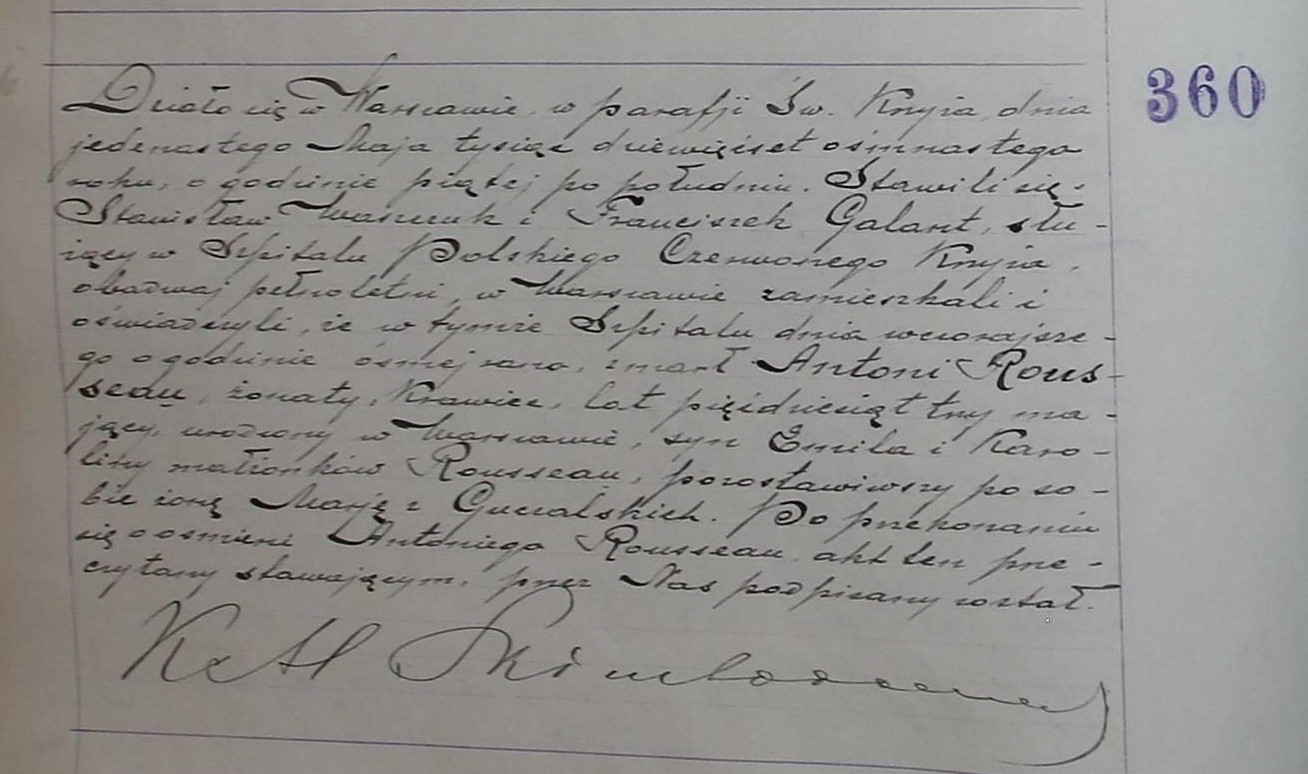 360
Działo się w Warszawie, w parafji Św. Krzyża, dnia
jedenastego Maja tysiąc dziewięćset ośmnastego
roku, o godzinie piątej po południu. Stawili się:
Stanisław Waszczuk i Franciszek Galant, słu-
żący w Szpitalu Polskiego Czerwonego Krzyża,
obadwaj pełnoletni, w Warszawie zamieszkali i
oświadczyli, że w tymże Szpitalu dnia wczorajsze-
go o godzinie ósmej rano, zmarł Antoni Rous-
seau, żonaty, Krawiec, lat pięćdziesiąt trzy ma-
jący, urodzony w Warszawie, syn Emila i Karo-
liny małżonków Rousseau, pozostawiwszy po so-
bie żonę Marję z Guzalskich. Po przekonaniu
się o śmierci Antoniego Rousseau akt ten prze-
czytany stawającym, przez Nas podpisany został.